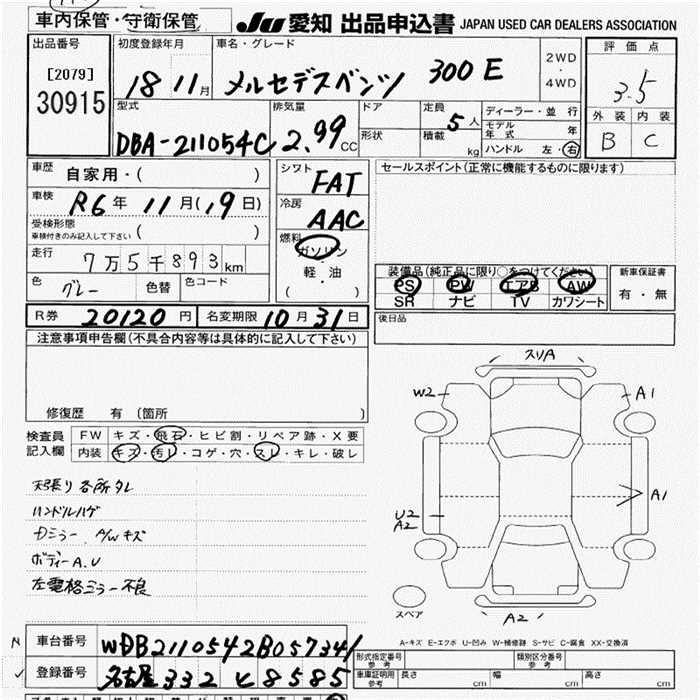 車内保管・守衛保管
JU 愛知 出品申込書 JAPAN USED CAR DEALERS ASSOCIATION
出品番号 初度登録年月 車名・グレード 2WD・4WD 評価点
[2079] 30915 18 11月 メルセデスベンツ 300E 3.5
型式 排気量 ドア 定員 ディーラー・並行 外装 内装
DBA-211054C 2.99cc 5人 モデル年式 年 B C
形状 積載 kg ハンドル 左・右
車歴 自家用・( ) シフト FAT セールスポイント(正常に機能するものに限ります)
車検 R6年 11月(19日) 冷房 AAC
受検形態 車検付きのみ記入して下さい ( ) 燃料 ガソリン・軽・油 ( )
走行 7万5千893km
色 グレー 色替 色コード
装備品(純正品に限り○をつけてください) 新車保証書
PS PW エアB AW 有・無
SR ナビ TV カワシート
R券 20120円 名変期限 10月31日 後日品
注意事項申告欄(不具合内容等は具体的に記入して下さい)
修復歴 有 〔箇所 〕
検査員記入欄 FW キズ・飛石・ヒビ割・リペア跡・X要
内装 キズ・汚レ・コゲ・穴・スレ・キレ・破レ
天張り各所タレ
ハンドルハゲ
Dミラー A/Wキズ
ボディーA.U
左電格ミラー不良
スリA
W2 A1
U2 A2 A1
スペア A2
A-キズ E-エクボ U-凹み W-補修跡 S-サビ C-腐食 XX-交換済
車台番号 WDB2110542B057341
登録番号 名古屋332 ヒ8585
形式指定番号 参考 類別区分番号 参考
車庫証明用 参考 長さ cm 幅 cm 高さ cm